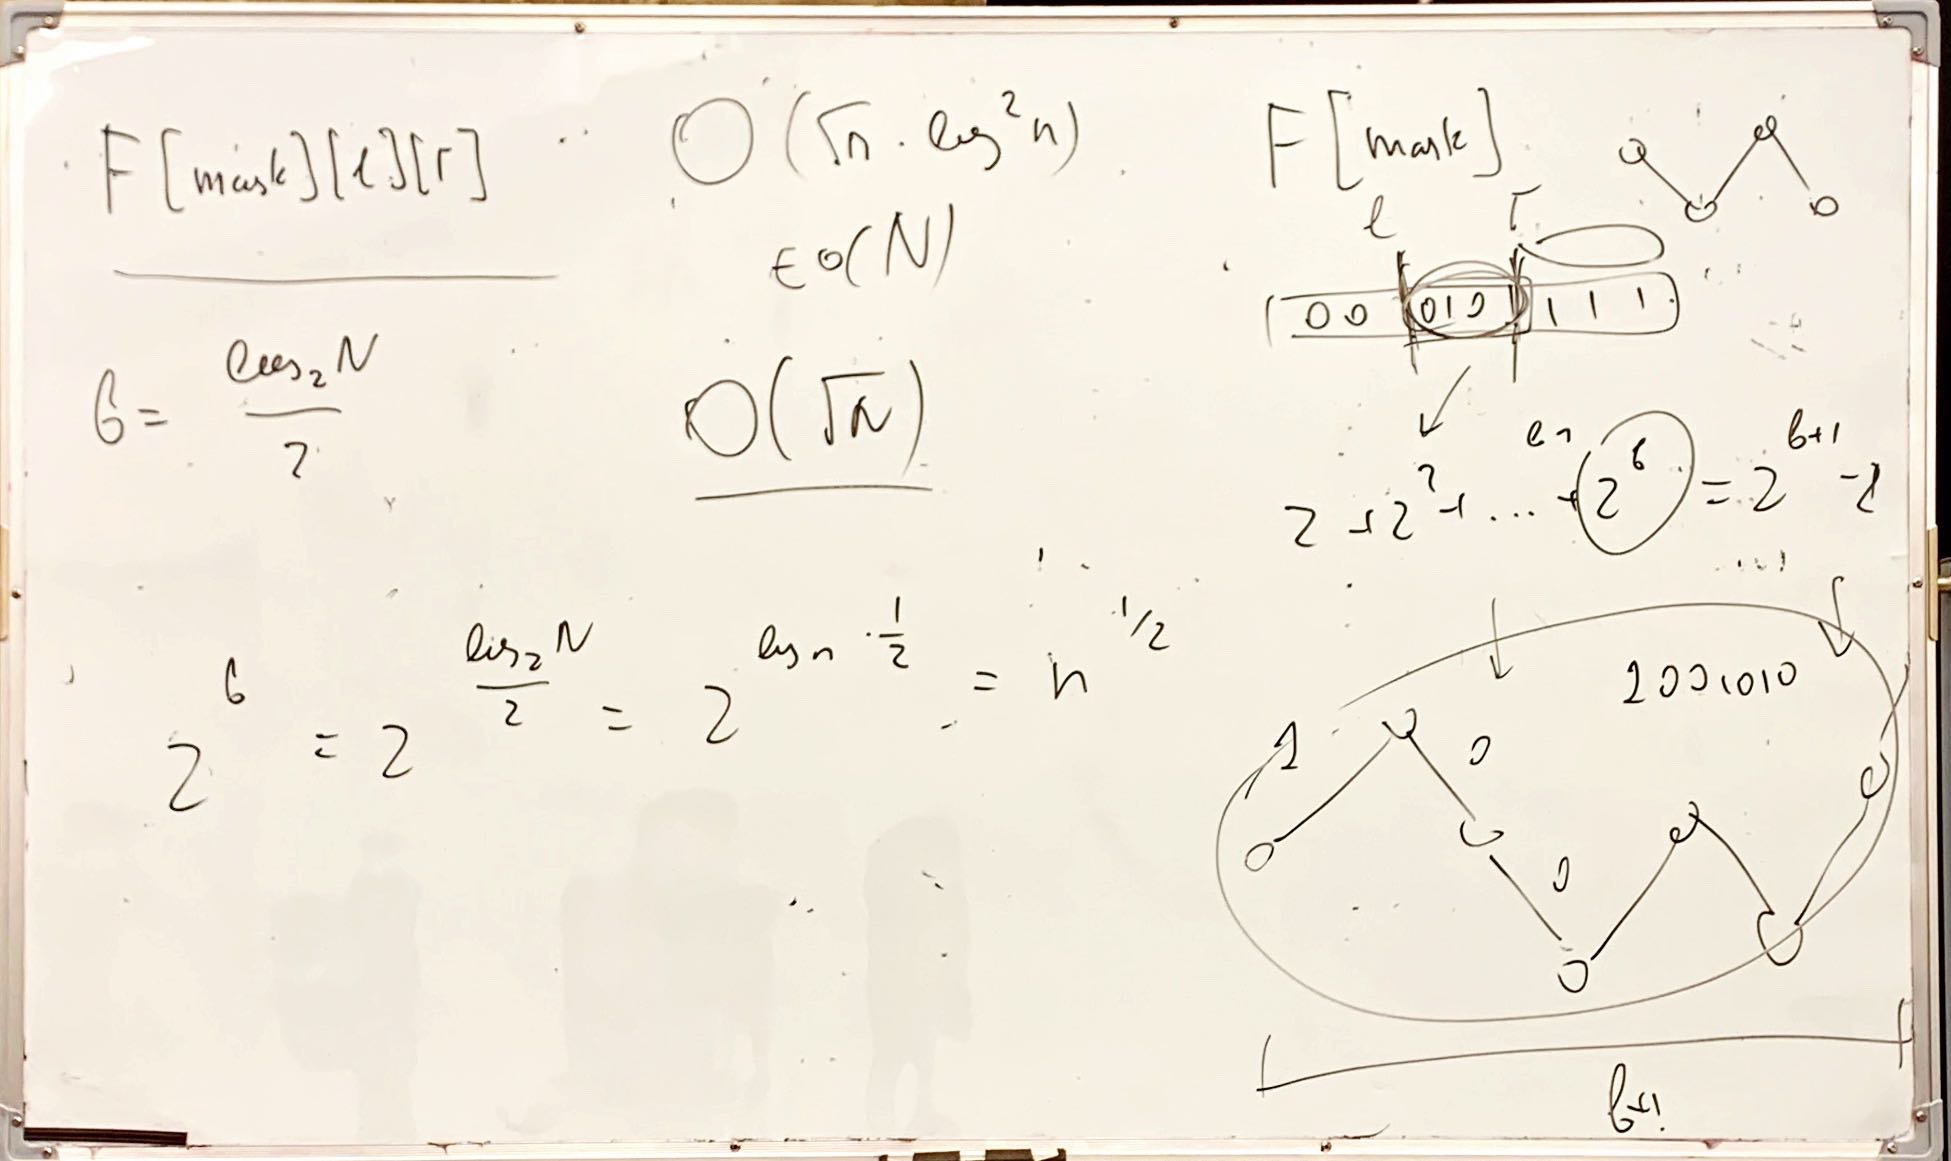 F[mask][l][r]
O(√n · log²n)
∈ o(N)
b = log₂N / 2
O(√N)
2^b = 2^(log₂N / 2) = 2^(log n · 1/2) = n^(1/2)
F[mask]
l r
0 0 0 1 0 1 1 1 1
2 + 2² + ... + 2^b = 2^(b+1) - 2
1001010
1 0
0
b+1